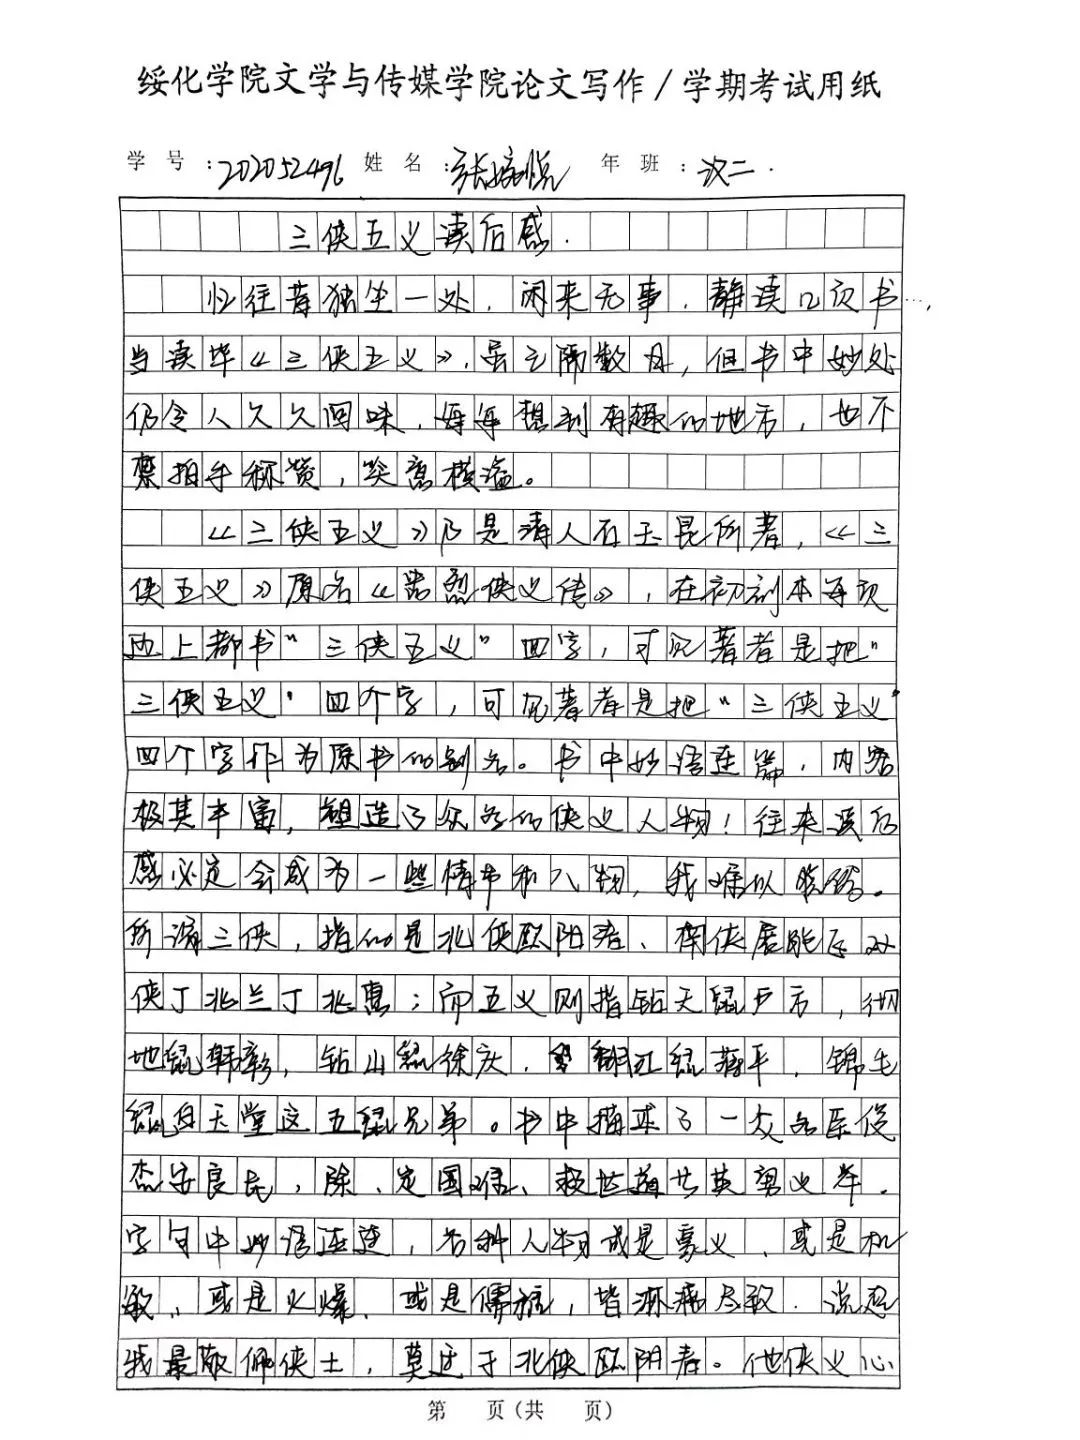 绥化学院文学与传媒学院论文写作/学期考试用纸
学 号 :202052496 姓 名 :张婉悦 年 班 :汉二.
三侠五义读后感.
忆往昔独坐一处，闲来无事，静读几页书…,
当读毕《三侠五义》，虽已隔数月，但书中妙处
仍令人久久回味，每每想到有趣的地方，也不
禁拍手称赞，笑意横溢。
《三侠五义》乃是清人石玉昆所著，《三
侠五义》原名《忠烈侠义传》，在初刻本每页
西上都书“三侠五义”四字，可见著者是把“
三侠五义”四个字，可见著者是把“三侠五义”
四个字作为原书的别名。书中妙语连篇，内容
极其丰富，塑造了众多的侠义人物！往来读后
感必定会成为一些情节和人物，我难以脱俗。
所谓三侠，指的是北侠欧阳春、南侠展昭及双
侠丁兆兰丁兆惠；而五义则指钻天鼠卢方，彻
地鼠韩彰，钻山鼠徐庆，翻江鼠蒋平，锦毛
鼠白天堂这五鼠兄弟。书中描求了一众名臣俊
杰安良民，除、定国 、救世道共英勇义举。
字句中妙语连连，各种人物或是豪义、或是机
敏、或是火爆、或是儒雅，皆淋漓尽致．说起
我最敬佩侠士，莫过于北侠欧阴春。他侠义心
第 页(共 页)